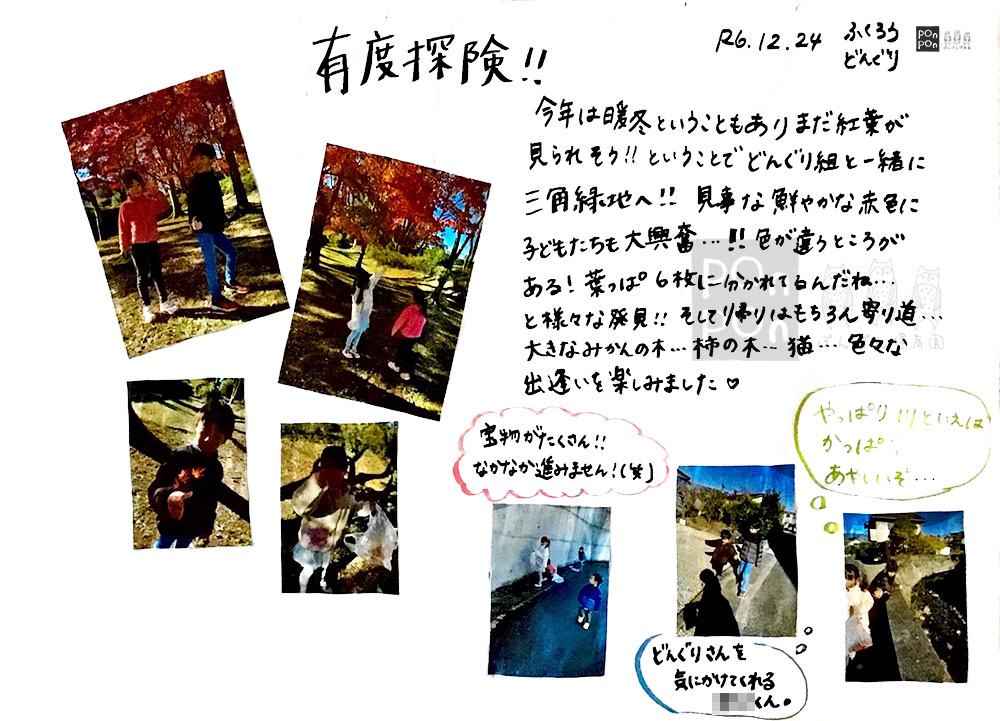 有度探険!!
R6.12.24
ふくろう
どんぐり
pon
pon
今年は暖冬ということもありまだ紅葉が
見られそう!!ということでどんぐり組と一緒に
三角緑地へ!! 見事な鮮やかな赤色に
子どもたちも大興奮…!! 色が違うところが
ある!葉っぱ6枚に分かれてるんだね…
と様々な発見!! そして帰りはもちろん寄り道…
大きなみかんの木…柿の木…猫…色々な
出逢いを楽しみました♡
pon
pon
育園
宝物がたくさん!!
なかなか進みません!(笑)
やっぱり川といえば
かっぱ!!
あやしいぞ…
どんぐりさんを
気にかけてくれる
くん。